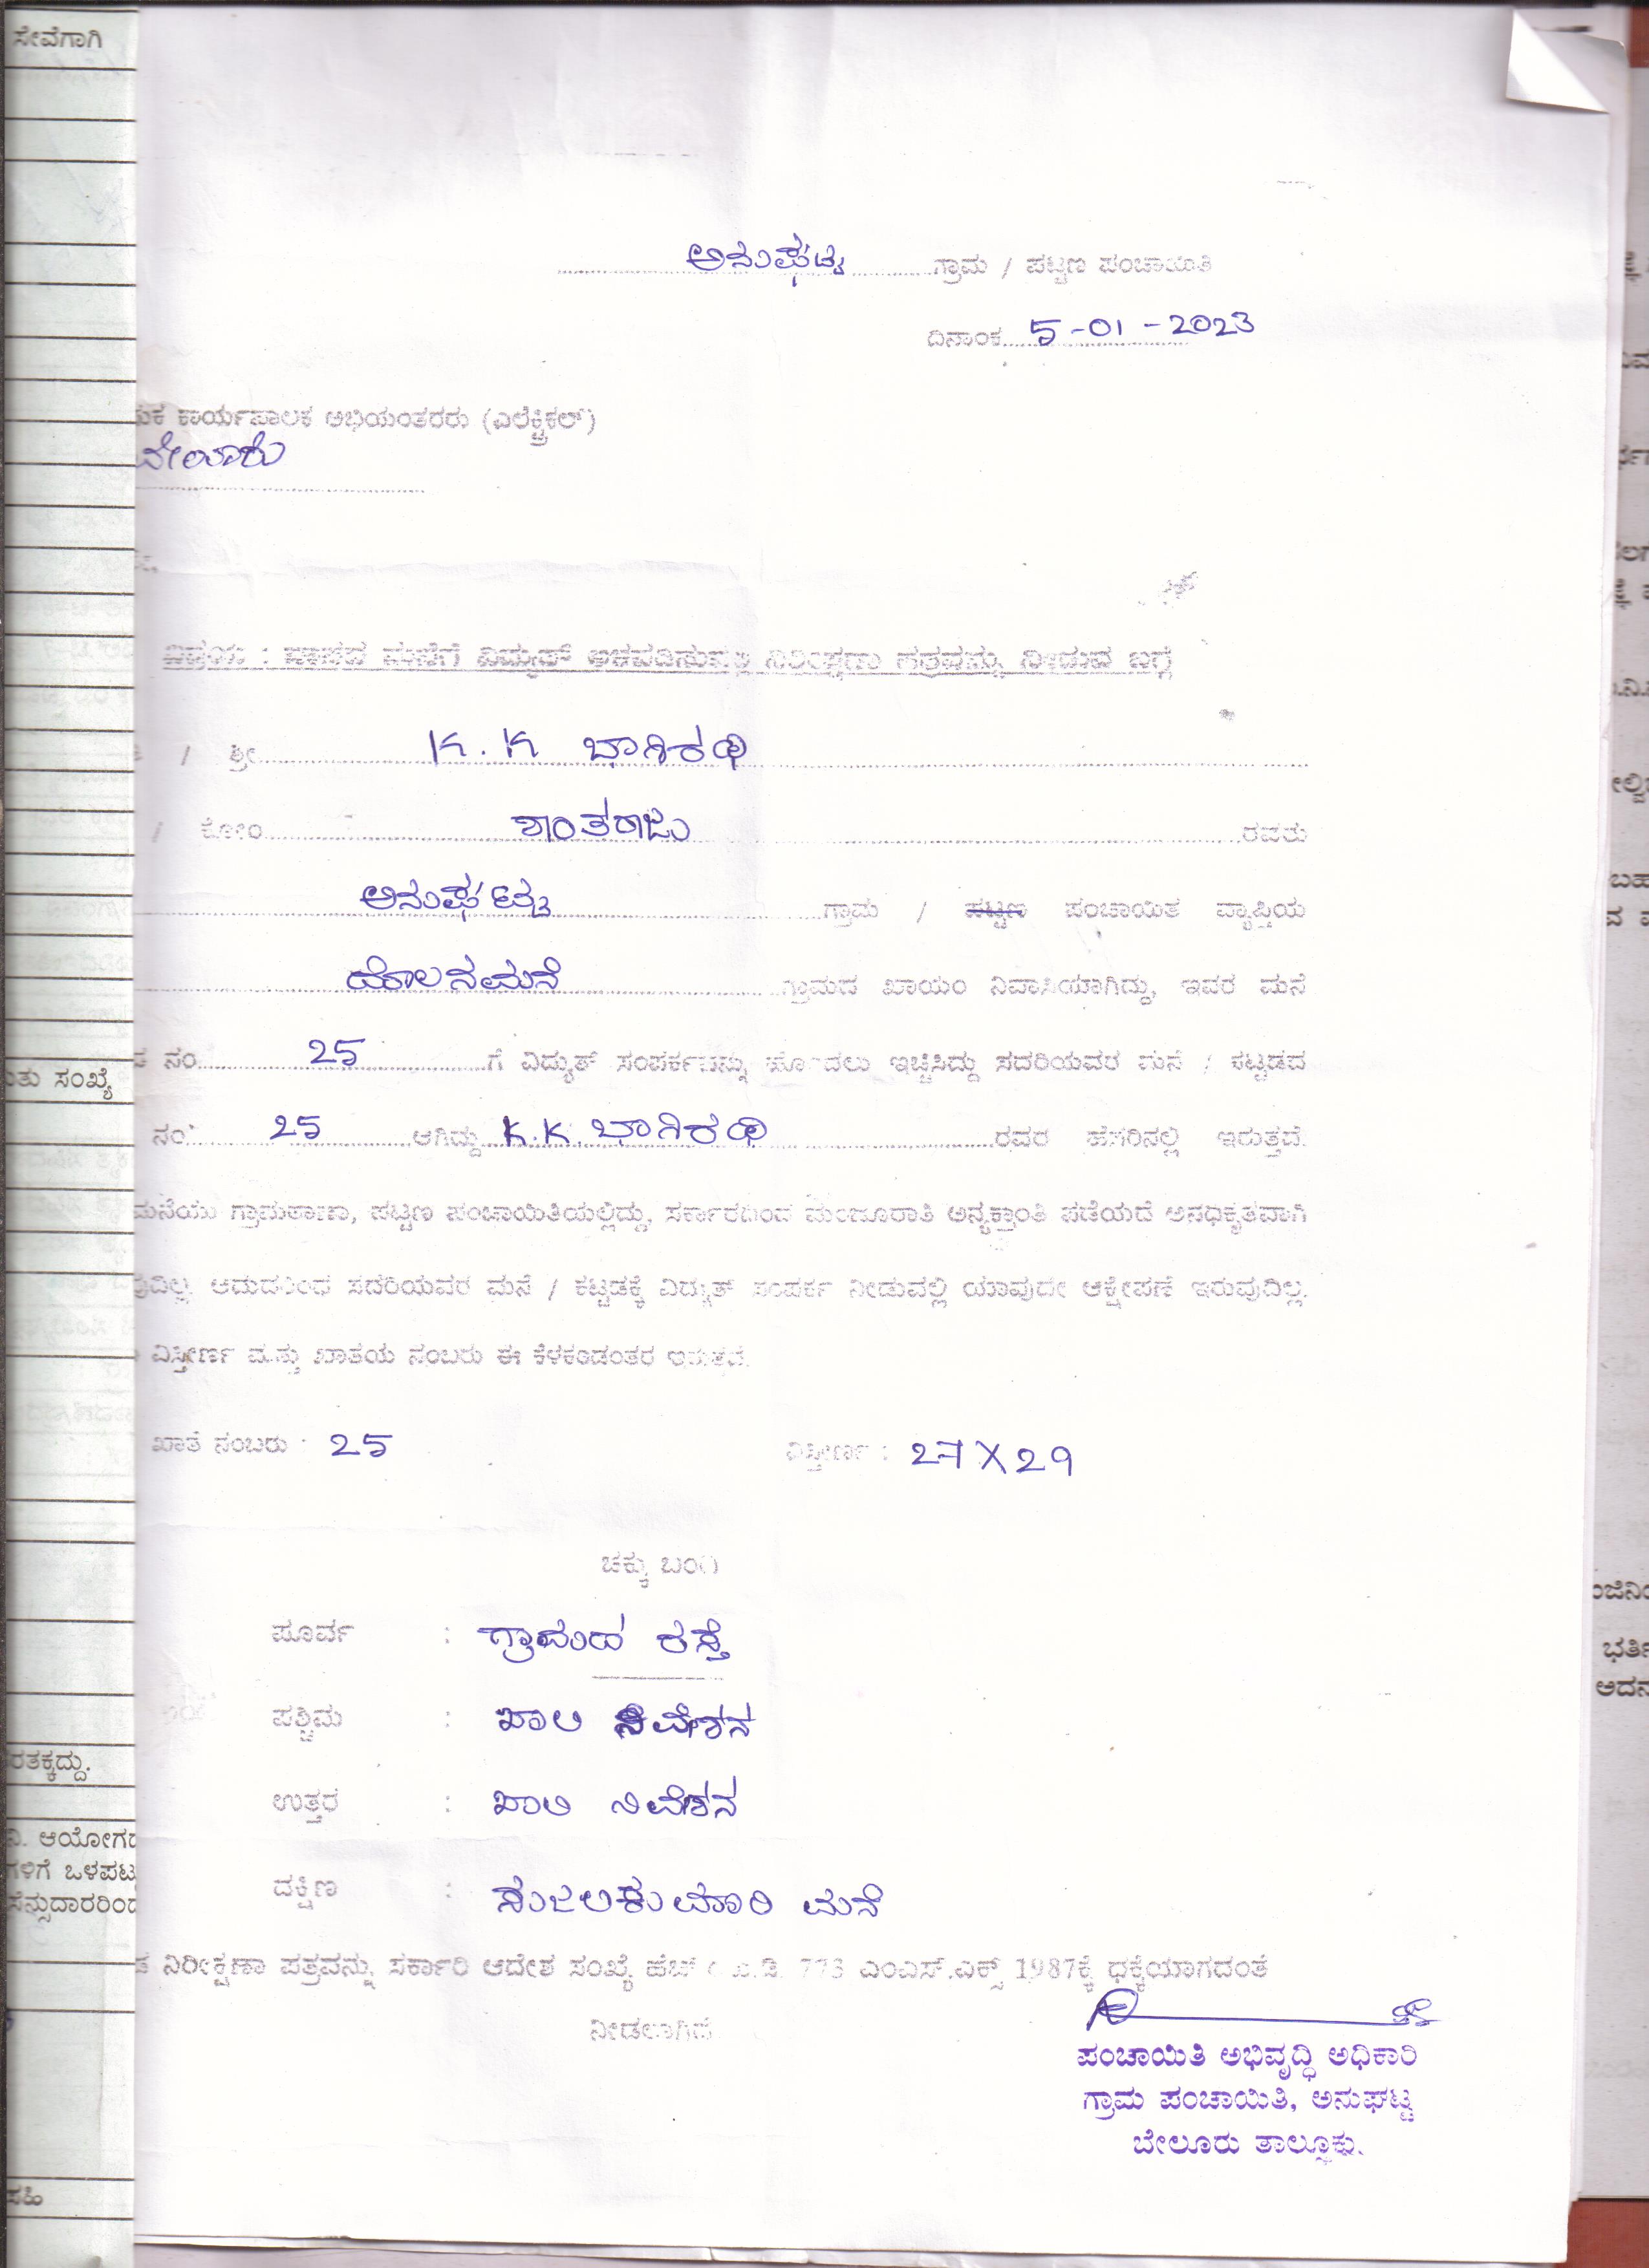 ಸೇವೆಗಾಗಿ
ಅನುಘಟ್ಟ ಗ್ರಾಮ / ಪಟ್ಟಣ ಪಂಚಾಯಿತಿ
ದಿನಾಂಕ 5-01-2023
ಕಾರ್ಯಪಾಲಕ ಅಭಿಯಂತರರು (ಎಲೆಕ್ಟ್ರಿಕಲ್)
ಬೇಲೂರು
ವಿಷಯ : ವಿದ್ಯುತ್ ನಿರೀಕ್ಷಣಾ ಪತ್ರವನ್ನು ನೀಡುವ ಬಗ್ಗೆ
/ ಶ್ರೀ K.K ಭಾಗಿರಥಿ
/ ಕೋಂ ಶಾಂತರಾಜು ರವರು
ಅನುಘಟ್ಟ ಗ್ರಾಮ / ಪಟ್ಟಣ ಪಂಚಾಯಿತ ವ್ಯಾಪ್ತಿಯ
ಗ್ರಾಮದ ಖಾಯಂ ನಿವಾಸಿಯಾಗಿದ್ದು, ಇವರ ಮನೆ
ನಂ 25 ಗೆ ವಿದ್ಯುತ್ ಸಂಪರ್ಕವನ್ನು ಹೊಂದಲು ಇಚ್ಚಿಸಿದ್ದು ಸದರಿಯವರ ಮನೆ / ಕಟ್ಟಡದ
ತು ಸಂಖ್ಯೆ
ನಂ 25 ಆಗಿದ್ದು K.K. ಭಾಗಿರಥಿ ರವರ ಹೆಸರಿನಲ್ಲಿ ಇರುತ್ತದೆ.
ಮನೆಯು ಗ್ರಾಮಠಾಣಾ, ಪಟ್ಟಣ ಪಂಚಾಯಿತಿಯಲ್ಲಿದ್ದು, ಸರ್ಕಾರದಿಂದ ಮಂಜೂರಾತಿ ಅನ್ಯಕ್ರಾಂತಿ ಪಡೆಯದೆ ಅನಧಿಕೃತವಾಗಿ
ಆದುದರಿಂದ ಸದರಿಯವರ ಮನೆ / ಕಟ್ಟಡಕ್ಕೆ ವಿದ್ಯುತ್ ಸಂಪರ್ಕ ನೀಡುವಲ್ಲಿ ಯಾವುದೇ ಆಕ್ಷೇಪಣೆ ಇರುವುದಿಲ್ಲ.
ವಿಸ್ತೀರ್ಣ ಮತ್ತು ಖಾತೆಯ ನಂಬರು ಈ ಕೆಳಕಂಡಂತರ ಇರುತ್ತದೆ.
ಖಾತೆ ನಂಬರು : 25 ವಿಸ್ತೀರ್ಣ : 27 X 29
ಚಕ್ಕು ಬಂದಿ
ಪೂರ್ವ : ಗ್ರಾಮದ ರಸ್ತೆ
ಪಶ್ಚಿಮ : ಖಾಲಿ ನಿವೇಶನ
ರತಕ್ಕದ್ದು.
ಉತ್ತರ : ಖಾಲಿ ನಿವೇಶನ
ನಿ. ಆಯೋಗದ
ಗಳಿಗೆ ಒಳಪಟ್ಟ
ಸೆನ್ಸುದಾರರಿಂದ
ದಕ್ಷಿಣ : ಮಂಜಲಕುಮಾರಿ ಮನೆ
ನಿರೀಕ್ಷಣಾ ಪತ್ರವನ್ನು ಸರ್ಕಾರಿ ಆದೇಶ ಸಂಖ್ಯೆ ಹೆಚ್ 773 ಎಂಎಸ್.ಎಕ್ಸ್ 1987ಕ್ಕೆ ಧಕ್ಕೆಯಾಗದಂತೆ
ನೀಡಲಾಗಿದೆ
ಪಂಚಾಯಿತಿ ಅಭಿವೃದ್ಧಿ ಅಧಿಕಾರಿ
ಗ್ರಾಮ ಪಂಚಾಯಿತಿ, ಅನುಘಟ್ಟ
ಬೇಲೂರು ತಾಲ್ಲೂಕು.
ಸಹಿ